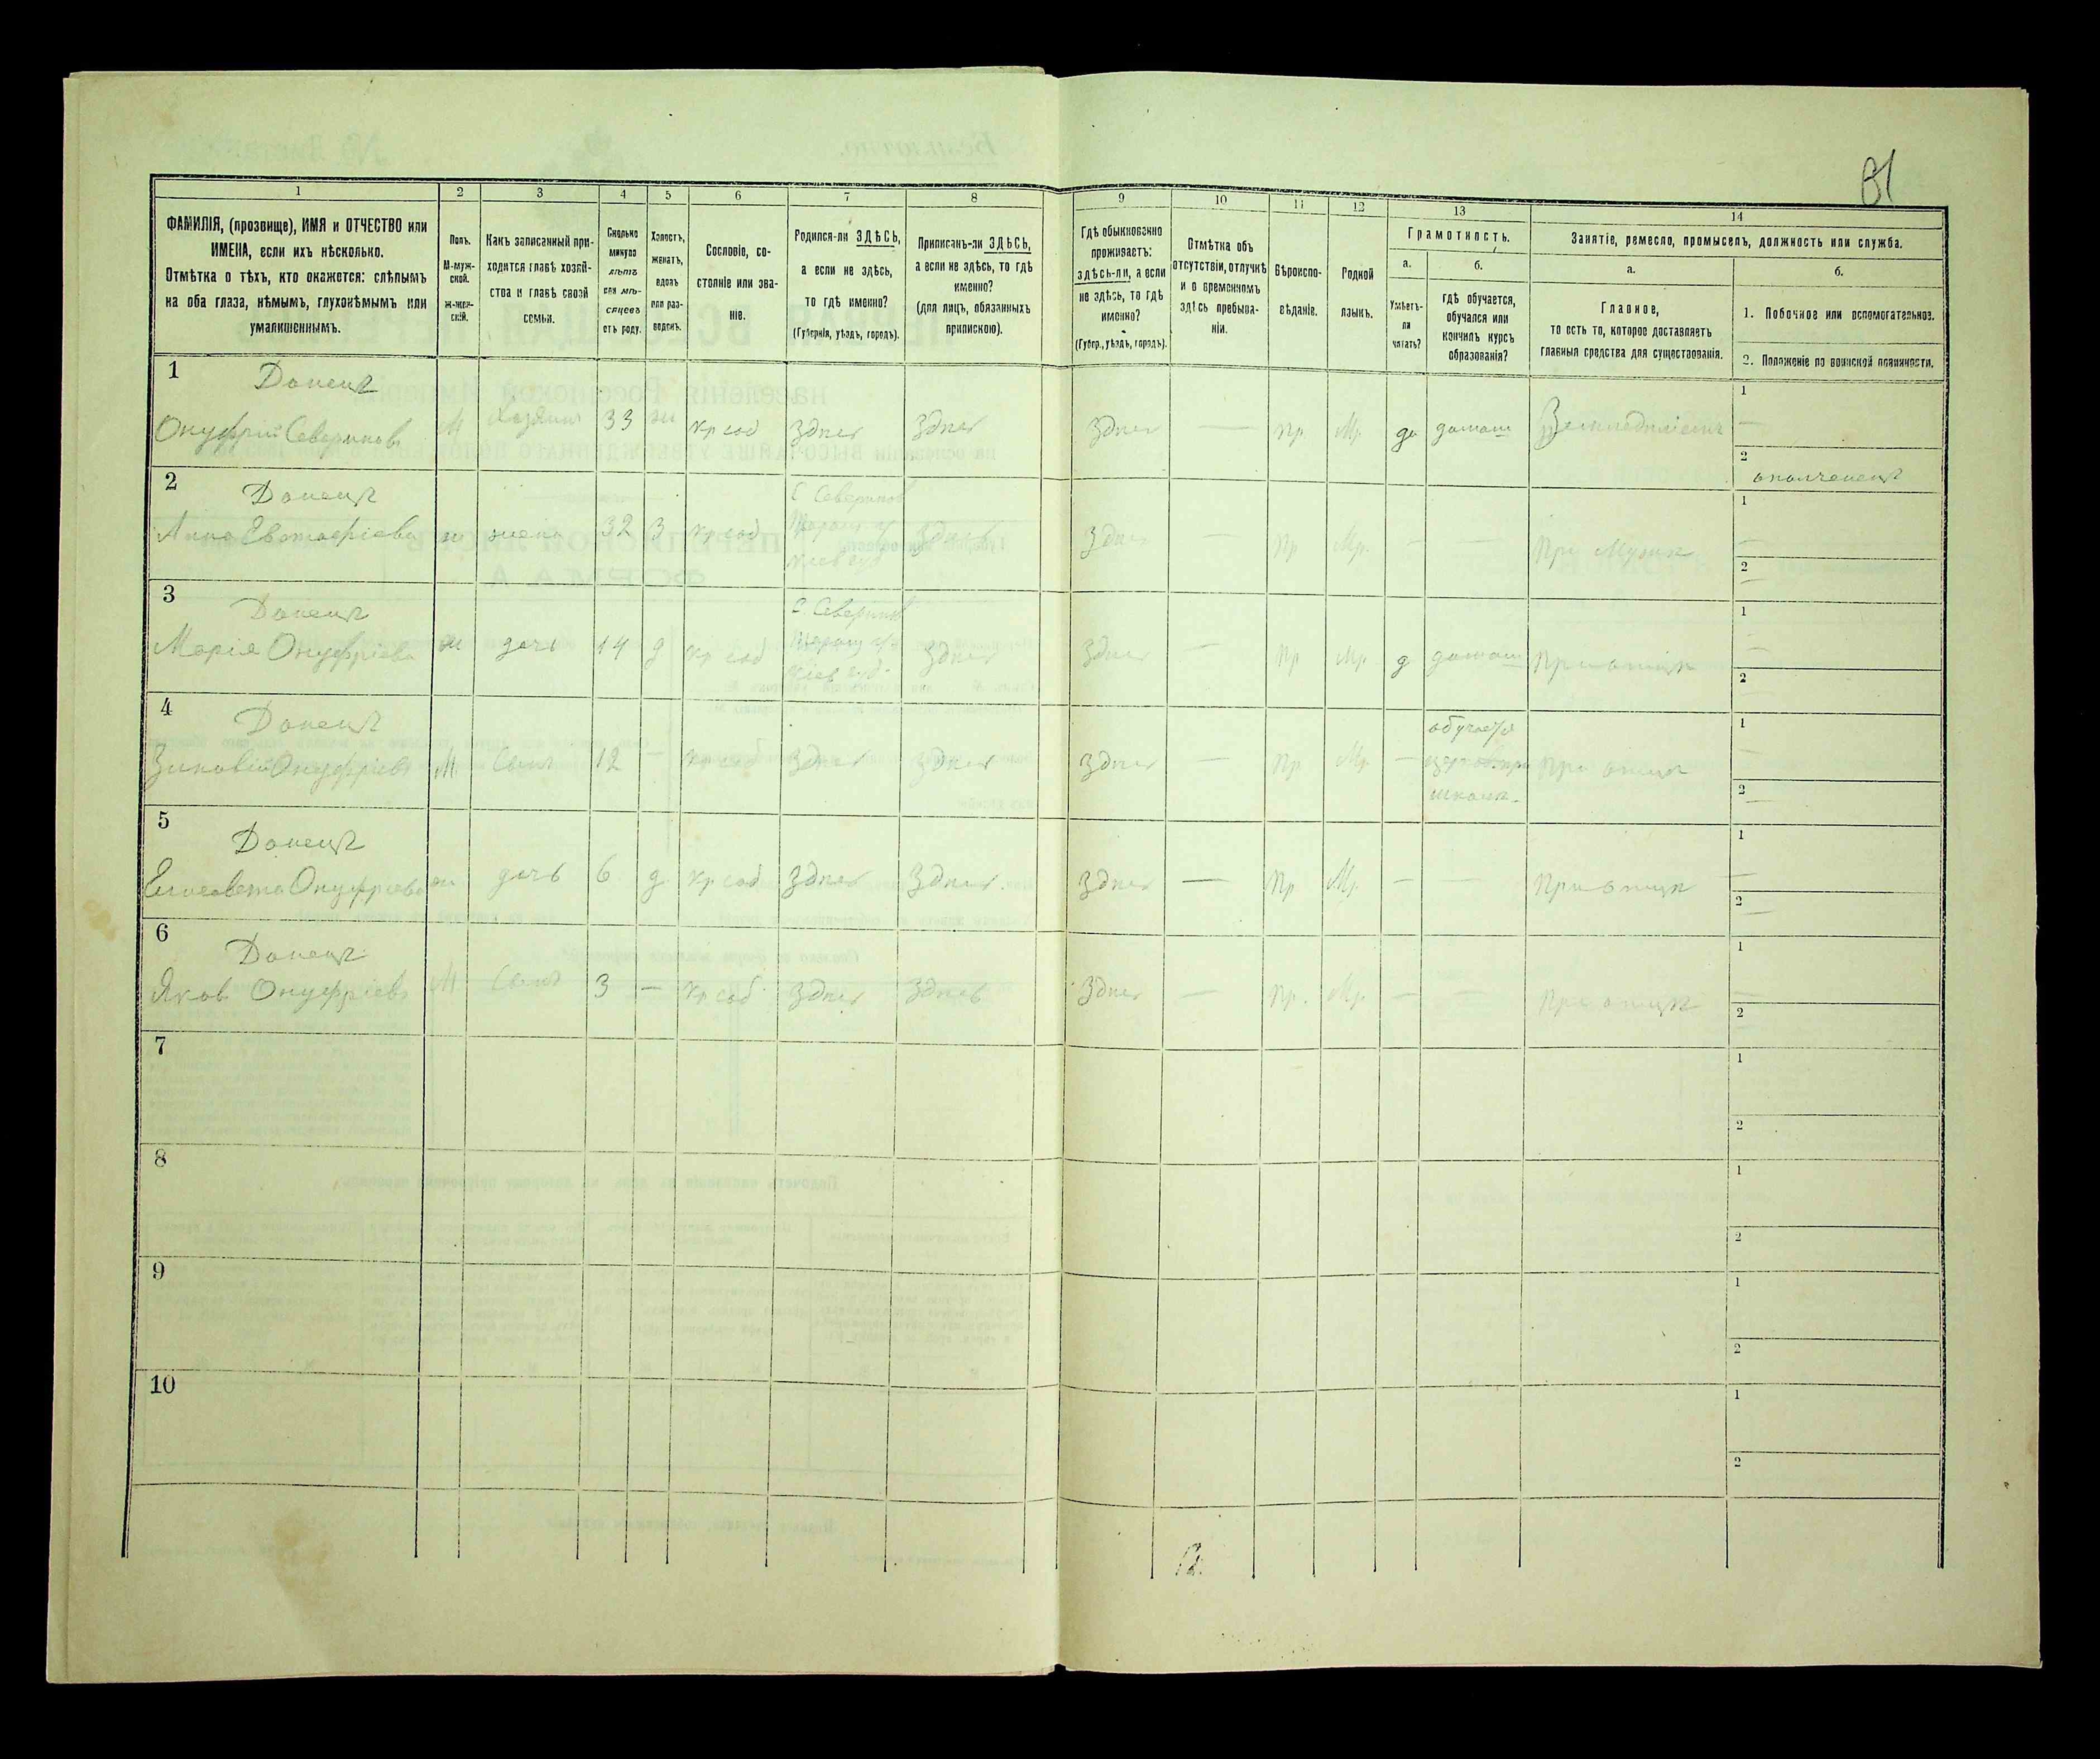 81
1
2
3
4
5
6
7
8
9
10
11
12
13
14
ФАМИЛІЯ, (прозвище), ИМЯ и ОТЧЕСТВО или
ИМЕНА, если ихъ нѣсколько.
Отмѣтка о тѣхъ, кто окажется: слѣпымъ
на оба глаза, нѣмымъ, глухонѣмымъ или
умалишеннымъ.
Полъ.
М-муж-
ской.
Ж-жен-
скій.
Какъ записанный при-
ходится главѣ хозяй-
ства и главѣ своей
семьи.
Сколько
минуло
лѣтъ
или мѣ-
сяцевъ
отъ роду.
Холостъ,
женатъ,
вдовъ
или раз-
веденъ.
Сословіе, со-
стояніе или зва-
ніе.
Родился-ли ЗДѢСЬ,
а если не здѣсь,
то гдѣ именно?
(Губернія, уѣздъ, городъ).
Приписанъ-ли ЗДѢСЬ,
а если не здѣсь, то гдѣ
именно?
(для лицъ, обязанныхъ
припискою).
Гдѣ обыкновенно
проживаетъ:
здѣсь-ли, а если
не здѣсь, то гдѣ
именно?
(Губер., уѣздъ, городъ).
Отмѣтка объ
отсутствіи, отлучкѣ
и о временномъ
здѣсь пребыва-
ніи.
Вѣроиспо-
вѣданіе.
Родной
языкъ.
Грамотность.
а.
Умѣетъ-
ли
читать?
б.
гдѣ обучается,
обучался или
кончилъ курсъ
образованія?
Занятіе, ремесло, промыселъ, должность или служба.
а.
Главное,
то есть то, которое доставляетъ
главныя средства для существованія.
б.
1. Побочное или вспомогательное.
2. Положеніе по воинской повинности.
1
Донецъ
Онуфрій Севериновъ М Хозяинъ 33 ж кр соб Здѣсь Здѣсь Здѣсь — пр. Мр. да домаш Земледѣліемъ
1 —
2 ополченецъ
2
Донецъ
Анна Евстафіева ж жена 32 З кр соб
С. Северинов
Здѣсь Здѣсь — пр Мр. — — При Мужѣ
1 —
2 —
3
Донецъ
Марія Онуфріева ж дочь 14 д кр соб
С. Северинов
Здѣсь Здѣсь — пр Мр. д домаш При отцѣ
1 —
2
4
Донецъ
Зиновій Онуфріевъ М. Сынъ 12 — кр соб Здѣсь Здѣсь Здѣсь — пр Мр. —
обучается
школѣ.
При отцѣ
1 —
2 —
5
Донецъ
Елисавета Онуфріева ж дочь 6 д. кр соб Здѣсь Здѣсь. Здѣсь — пр. Мр. — — При отцѣ
1 —
2 —
6
Донецъ
Яков Онуфріевъ М Сынъ 3 — кр соб. Здѣсь Здѣсь Здѣсь — пр. Мр. — — При отцѣ
1 —
2
7
1
2
8
1
2
9
1
2
10
1
2